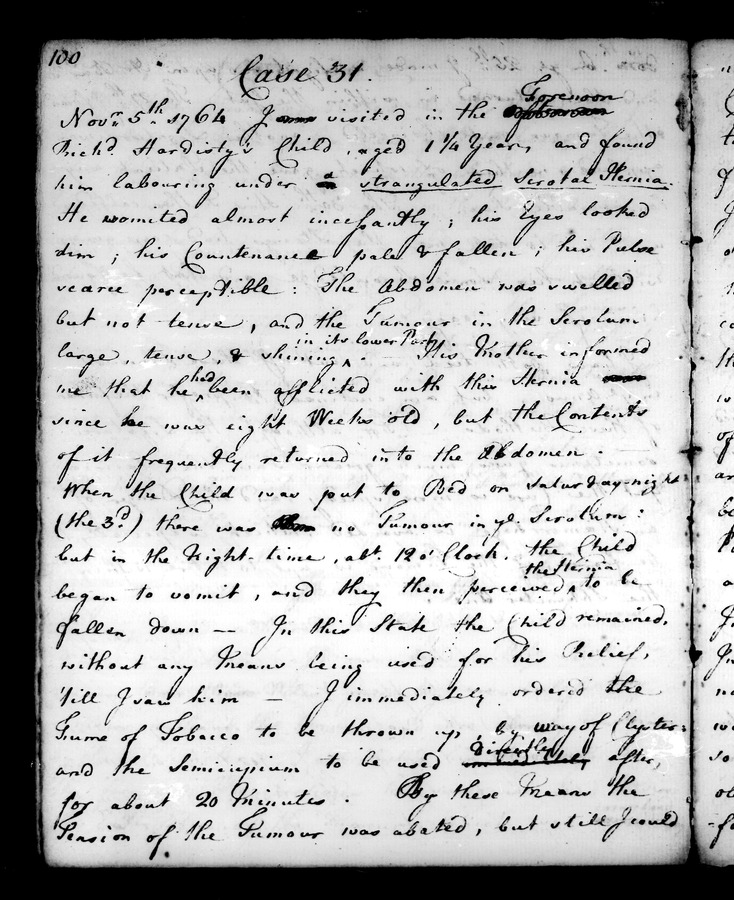 100
Case 31.
Forenoon
Novr. 5th. 1764 I visited in the
Richd. Hardisty's Child, aged 1 1/4 Year, and found
him labouring under a strangulated Scrotal Hernia.
He vomited almost incessantly; his Eyes looked
dim; his Countenance pale & fallen; his Pulse
scarce perceptible: The Abdomen was swelled
but not tense, and the Tumour in the Scrotum
in its lower Part
large, tense, & shining ^. — His Mother informed
me that he had been afflicted with this Hernia
since he was eight Weeks old, but the Contents
of it frequently returned into the Abdomen. —
When the Child was put to Bed on Saturday-night
(the 3d.) there was no Tumour in ye. Scrotum:
but in the Night-time, abt. 12 o'Clock, the Child
the Hernia
began to vomit, and they then perceived ^ to be
fallen down — In this State the Child remained,
without any Means being used for his Relief,
'till I saw him — I immediately ordered the
Fume of Tobacco to be thrown up, by way of Clyster:
Directly
and the Semicupium to be used after,
for about 20 Minutes. By these Means the
Tension of the Tumour was abated, but still I could